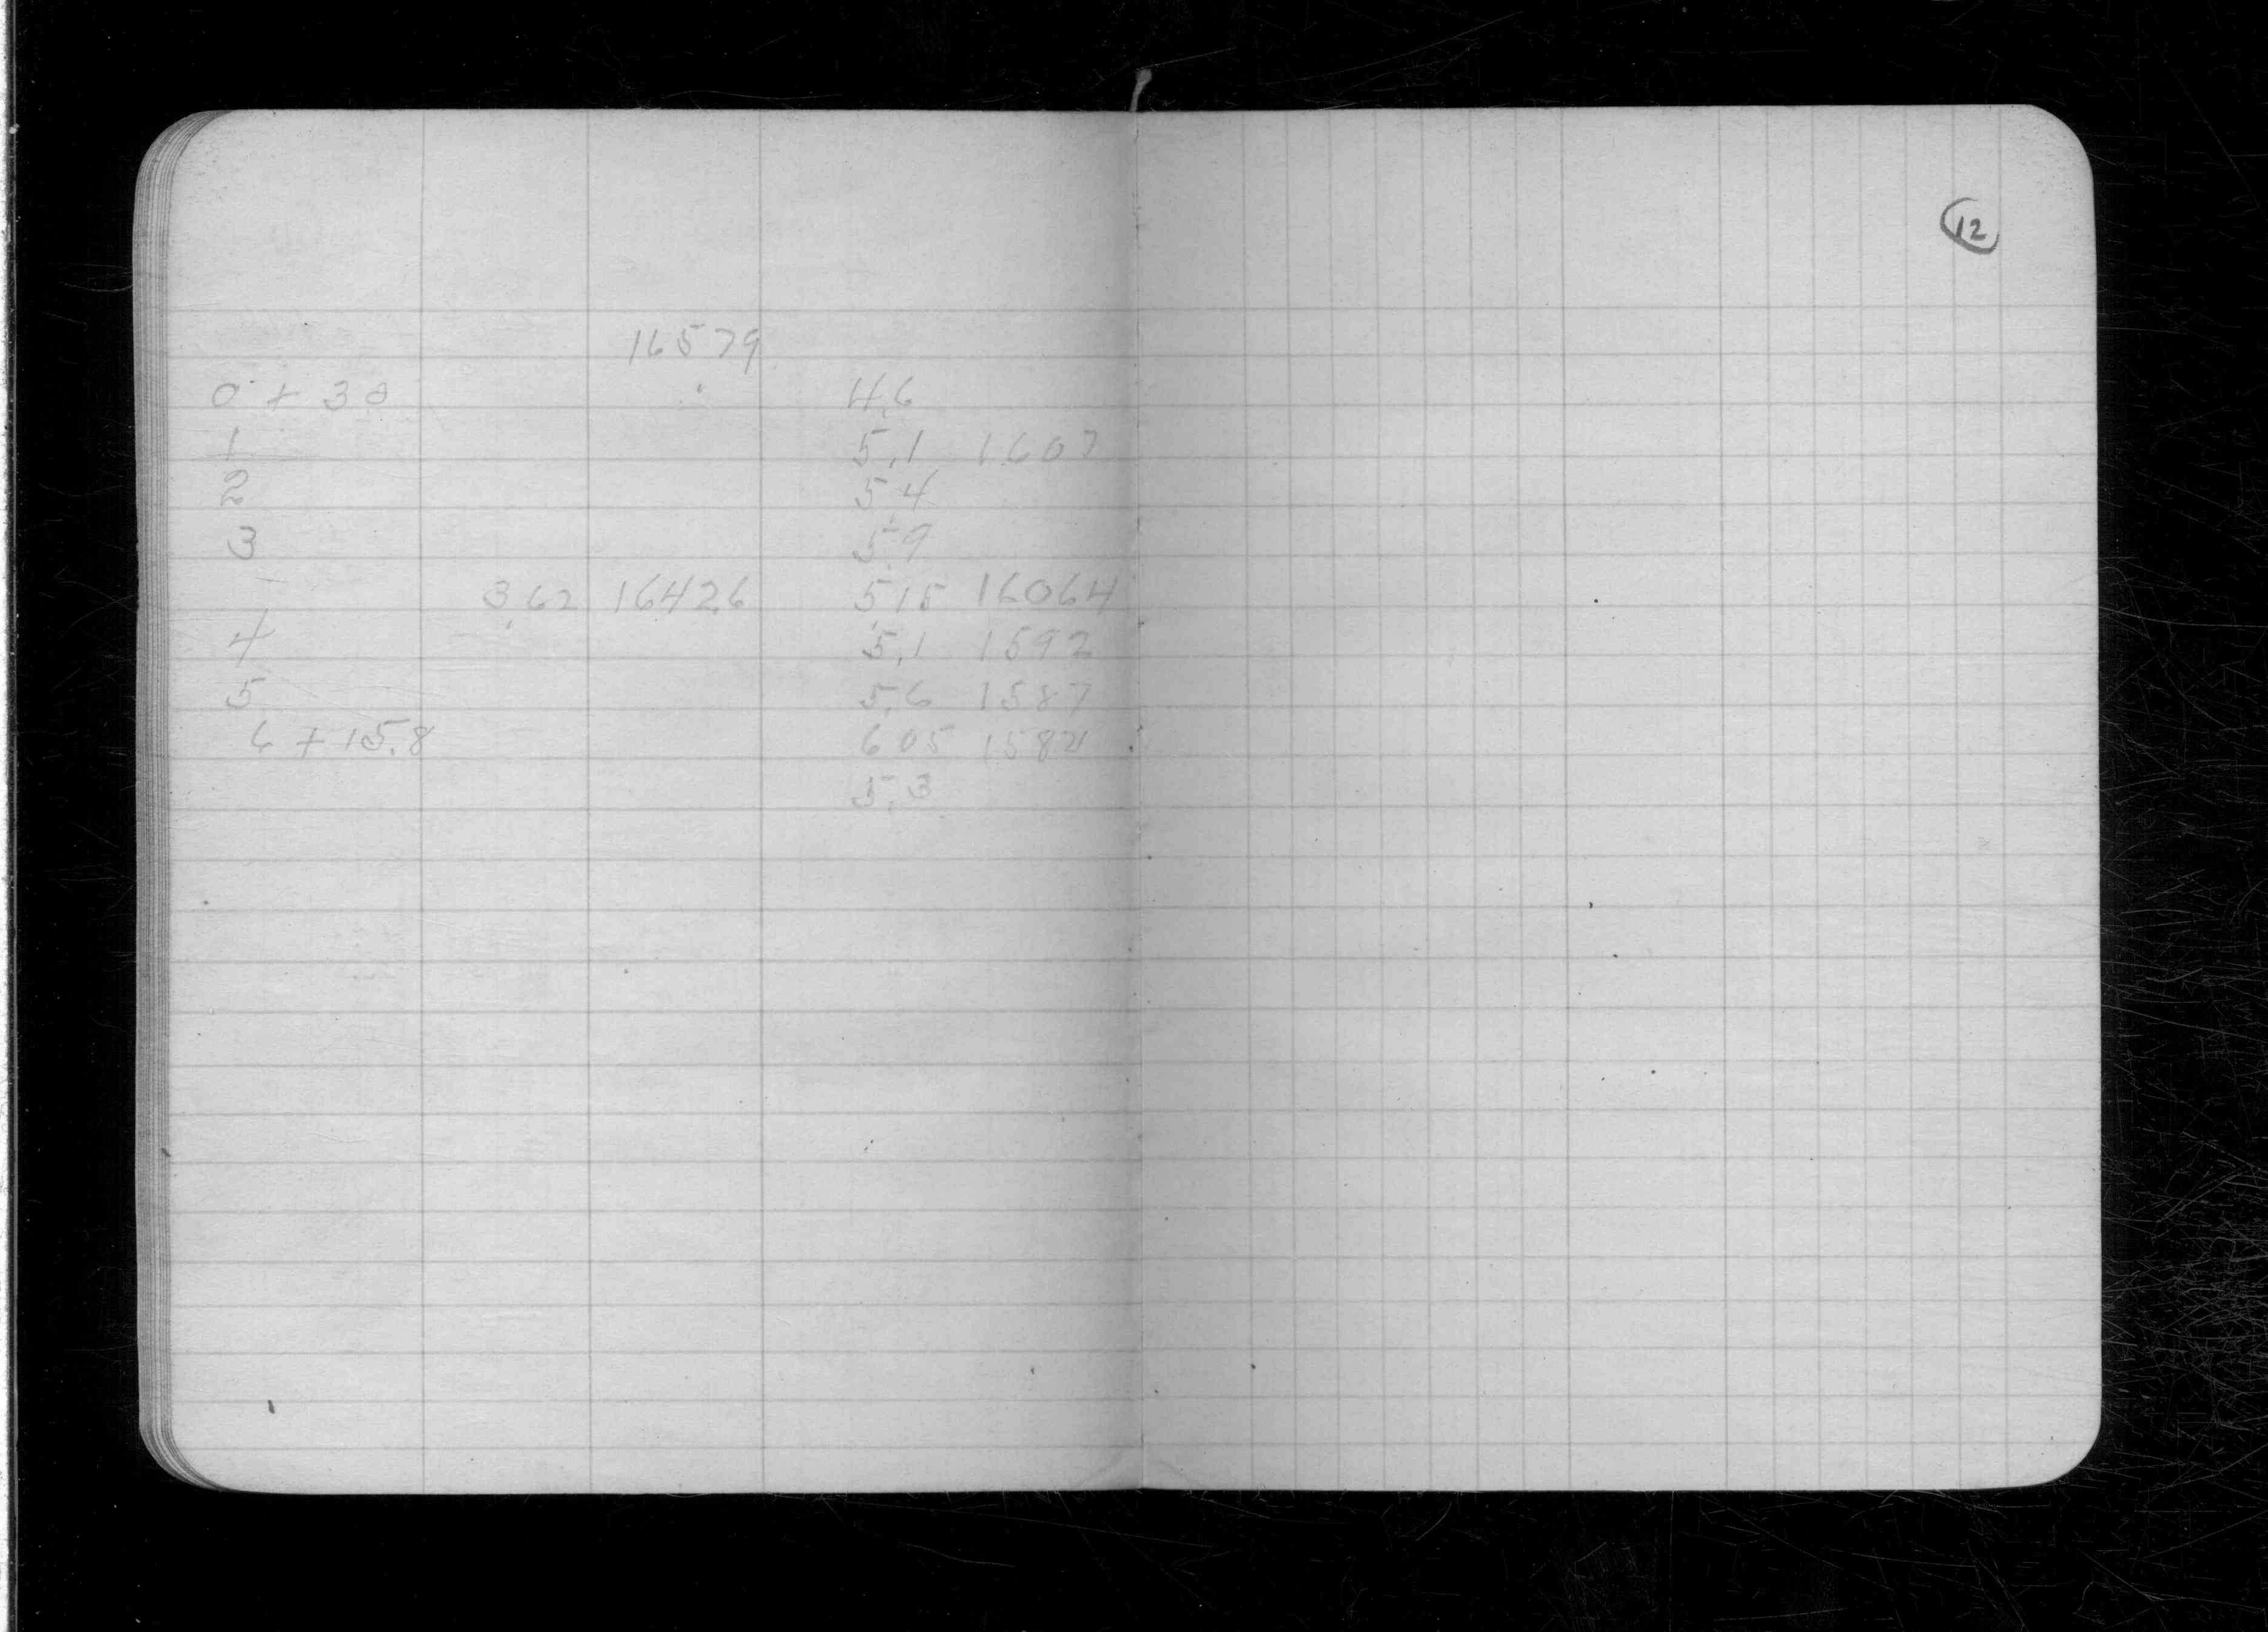 12
16579
0 + 30 4.6
1 5.1 1607
2 5.4
3 5.9
3.62 16426 5.15 16064
4 5.1 1592
5 5.6 1587
6 + 15.8 6.05
5.3